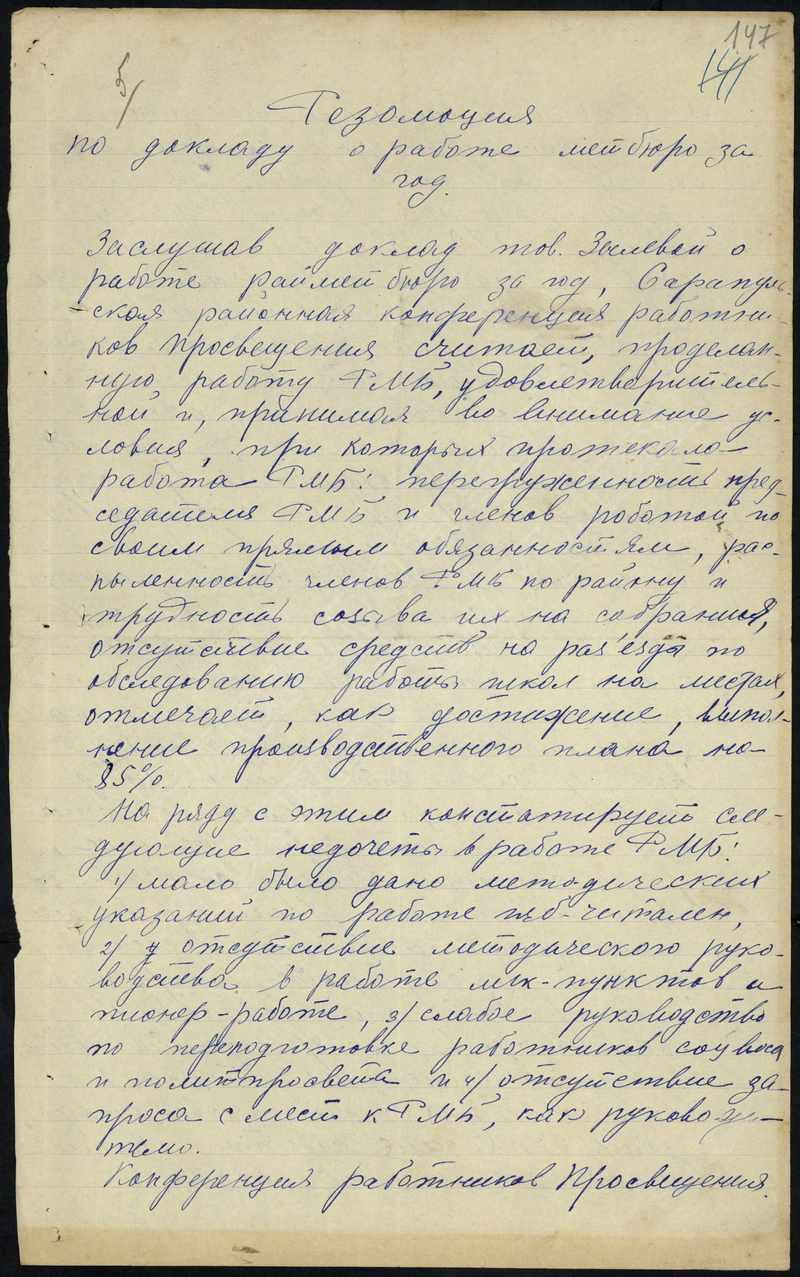 147
141
5/
Резолюция
по докладу о работе метбюро за
год.
Заслушав доклад тов. Зылевой о
работе райметбюро за год, Сарапуль-
ская районная конференция работни-
ков просвещения считает, проделан-
ную работу РМБ, удовлетворитель-
ной и, принимая во внимание ус-
ловия, при которых протекала
работа РМБ: перегруженность пред-
седателя РМБ и членов работой по
своим прямым обязанностям, рас-
пыленность членов РМБ по району и
трудность созыва их на собрания,
отсутствие средств на раз'езда по
обследованию работы школ на местах,
отмечает, как достижение, выпол-
нение производственного плана на
85%.
На ряду с этим констатирует сле-
дующие недочеты в работе РМБ:
1/ мало было дано методических
указаний по работе изб-читален,
2/ отсутствие методического руко-
водства в работе лик-пунктов и
пионер-работе, 3/ слабое руководство
по переподготовке работников соцвоса
и политпросвета и 4/ отсутствие за-
проса с мест к РМБ, как руководи-
телю.
Конференция работников просвещения